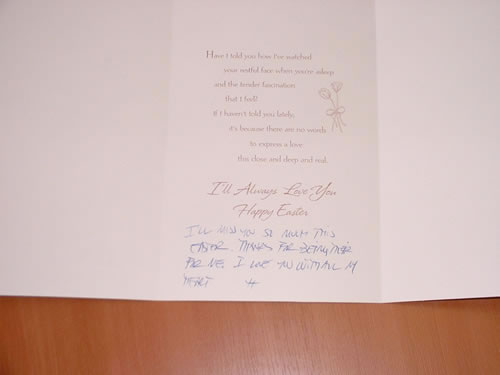 Have I told you how I've watched
your restful face when you're asleep
and the tender fascination
that I feel?
If I haven't told you lately,
it's because there are no words
to express a love
this close and deep and real.
I'll Always Love You
Happy Easter
I'LL MISS YOU SO MUCH THIS
EASTER. THANKS FOR BEING THEIR
FOR ME. I LOVE YOU WITH ALL MY
HEART